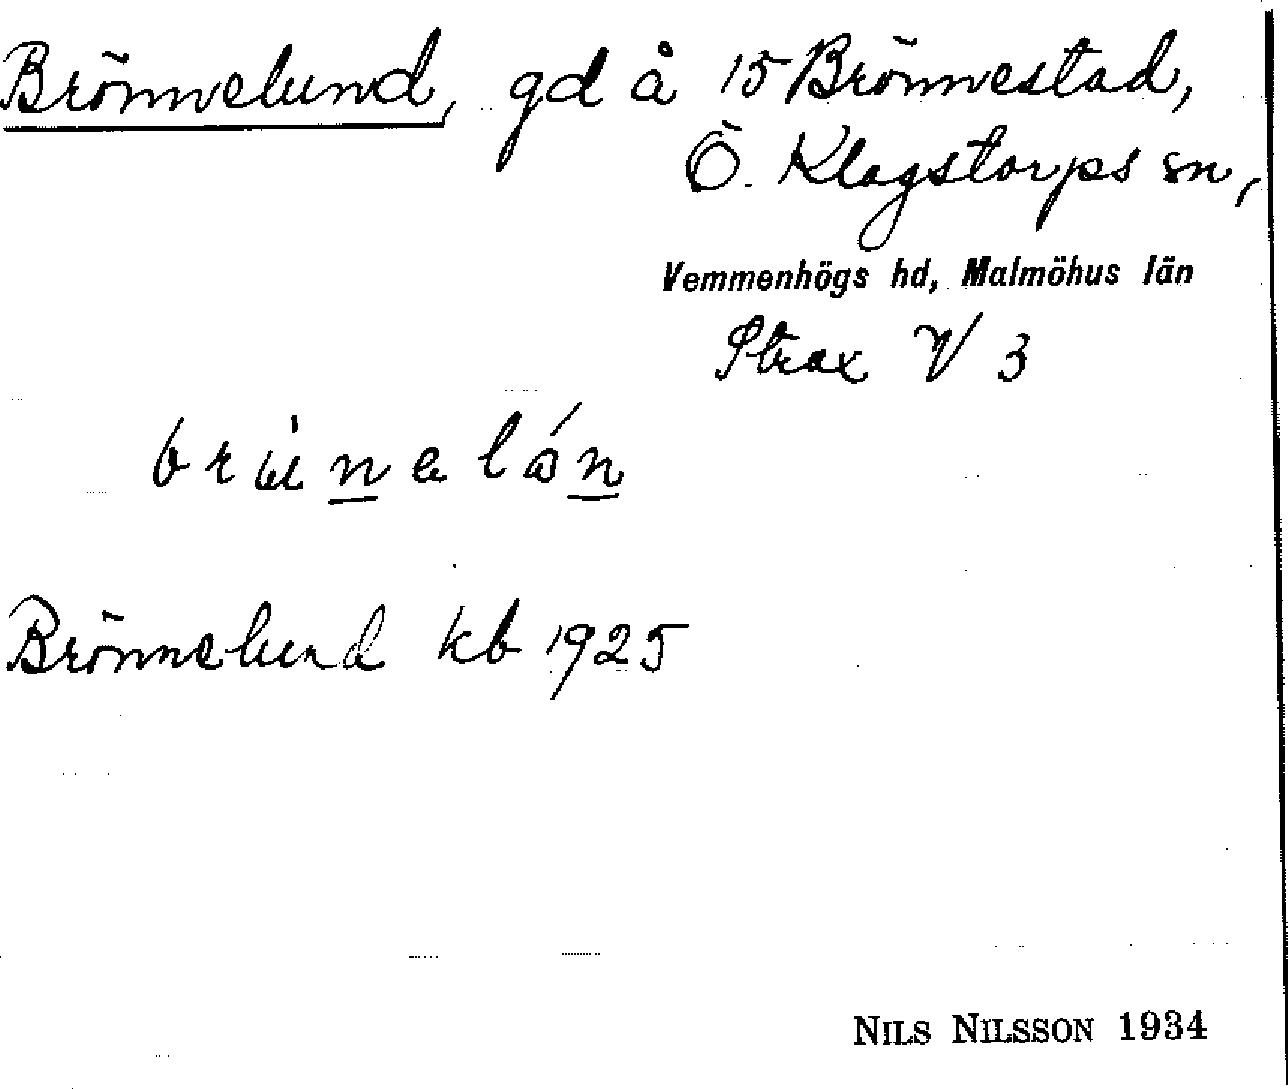 Brönnelund, gd å 15 Brönnestad,
Ö. Klagstorps sn,
Vemmenhögs hd, Malmöhus län
Strax V 3
Brönnelund kb 1925
NILS NILSSON 1934